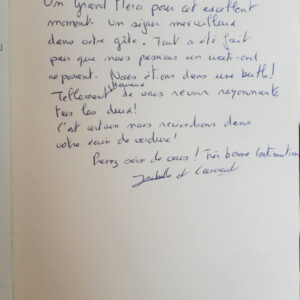 Un Grand Merci pour cet excellent
moment. Un séjour merveilleux
dans votre gîte. Tout a été fait
pour que nous passions un week-end
reposant. Nous étions dans une bulle!
Tellement heureux de vous revoir rayonnants
tous les deux!
C'est certain nous reviendrons dans
votre écrin de verdure!
Prenez soin de vous! Très bonne continuation
Isabelle et Laurent